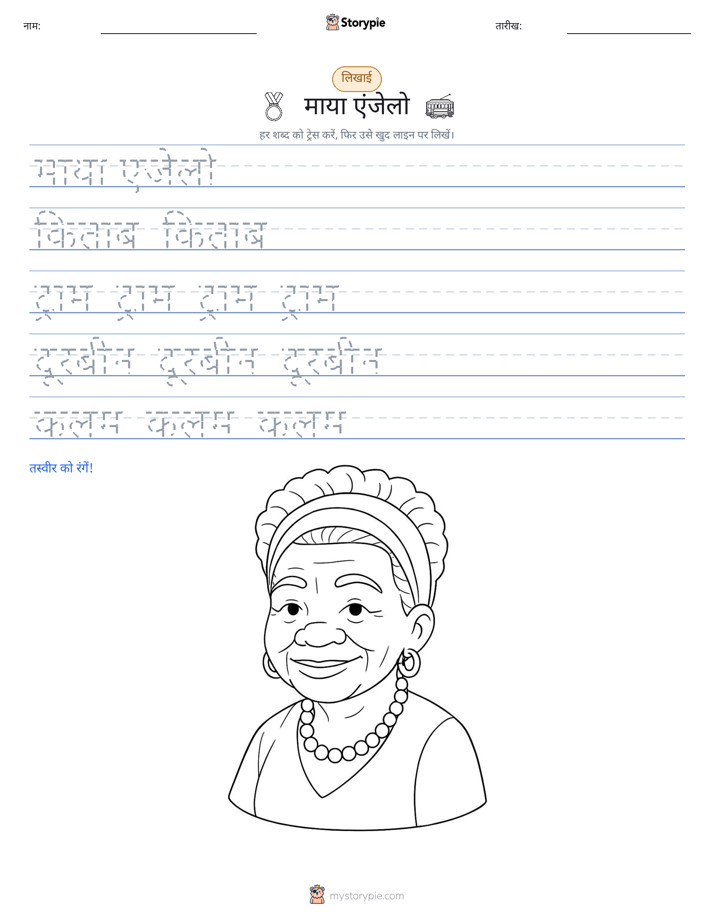 नाम:
Storypie
तारीख:
लिखाई
माया एंजेलो
हर शब्द को ट्रेस करें, फिर उसे खुद लाइन पर लिखें।
माया एंजेलो
किताब किताब
ट्राम ट्राम ट्राम ट्राम
दूरबीन दूरबीन दूरबीन
कलम कलम कलम
तस्वीर को रंगें!
mystorypie.com